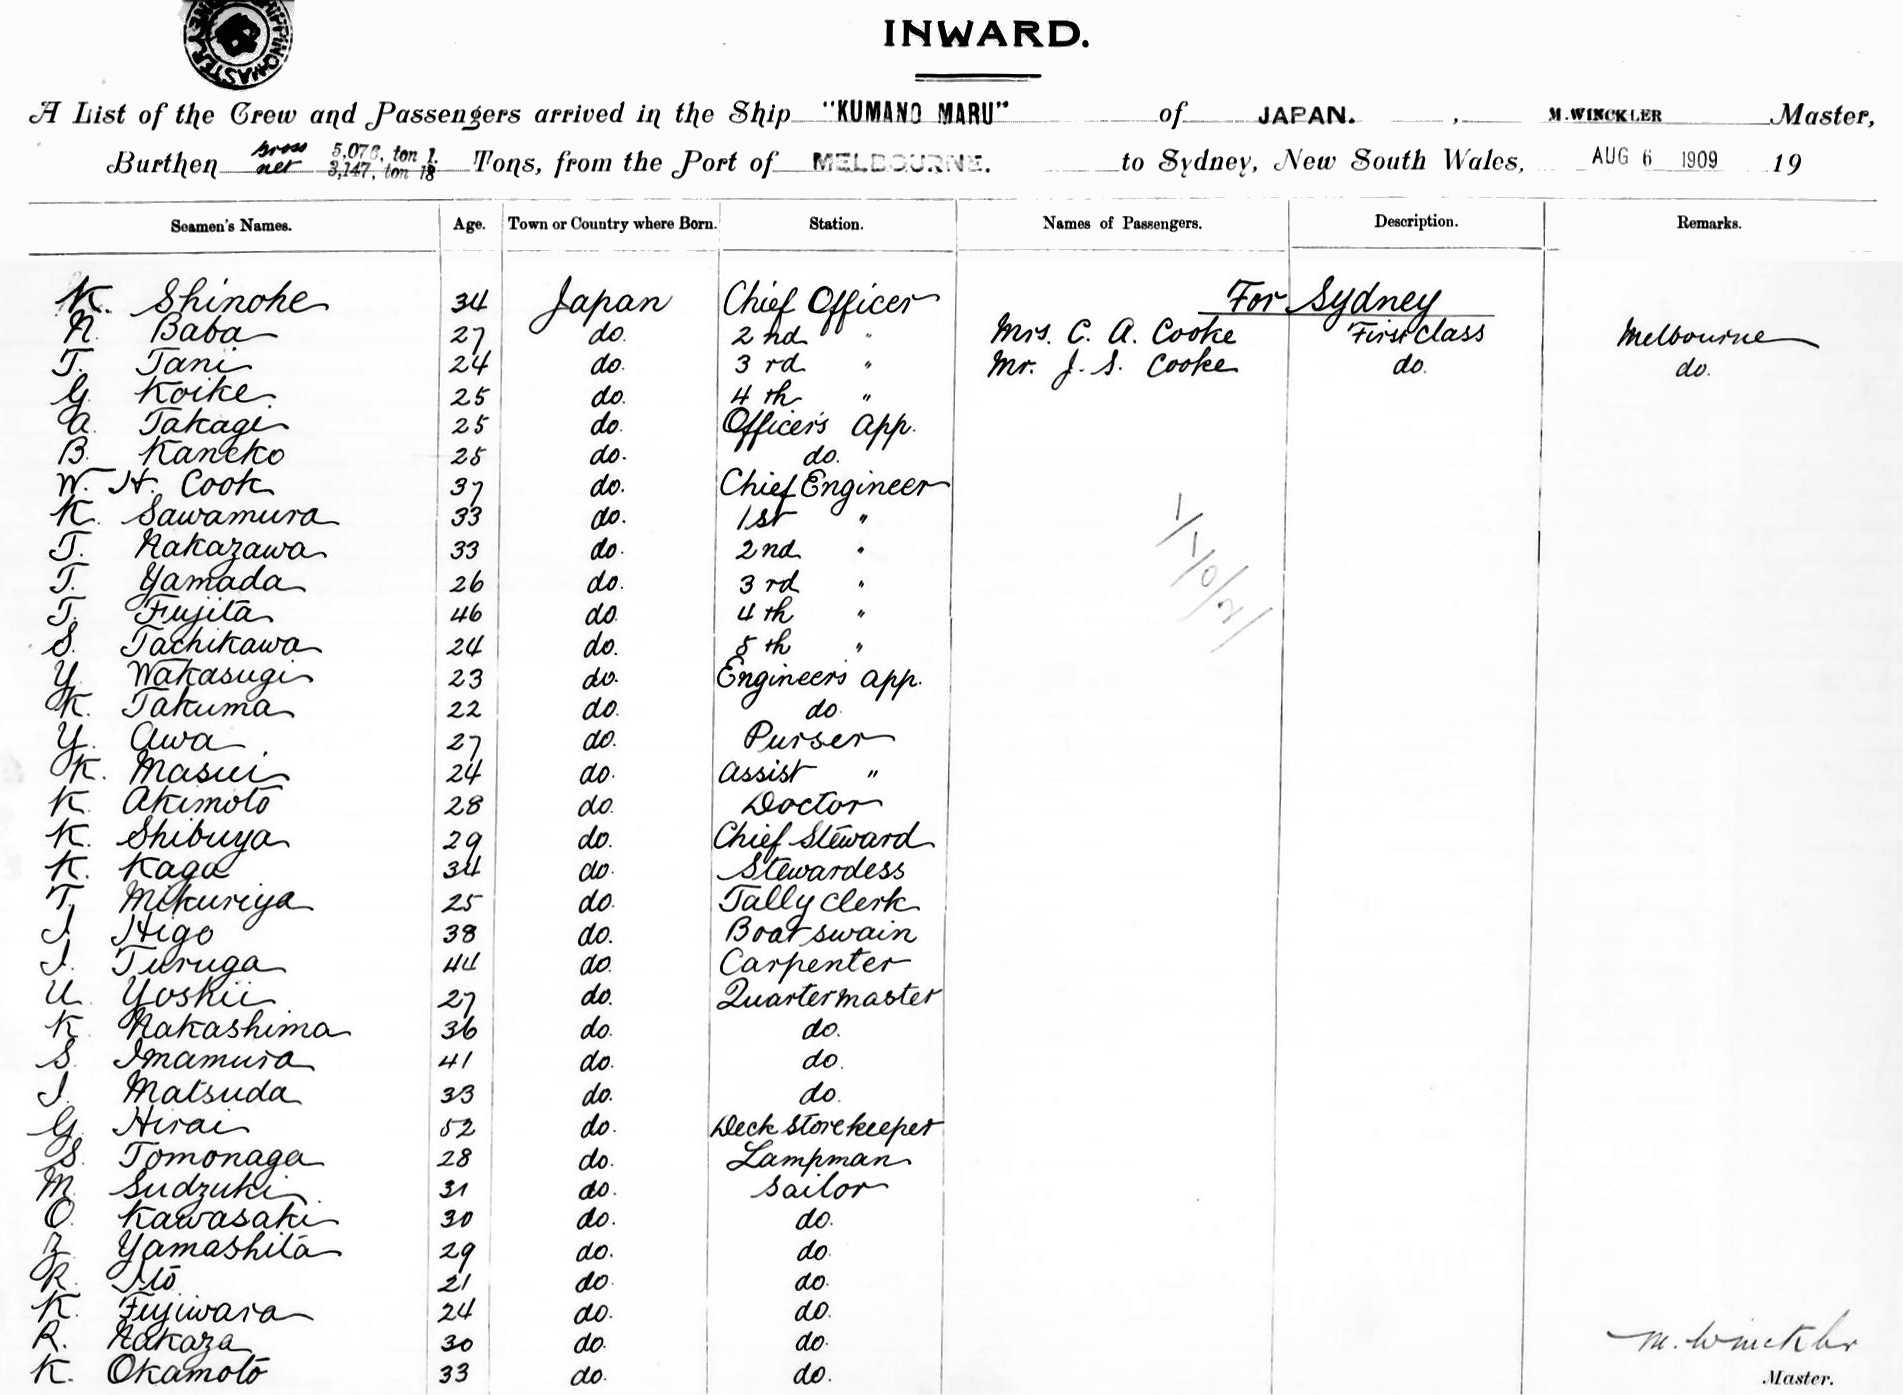 INWARD.
A List of the Crew and Passengers arrived in the Ship "KUMANO MARU" of JAPAN. , M. WINCKLER Master,
Burthen gross 5,076, ton 1. net 3,147, ton 18 Tons, from the Port of MELBOURNE. to Sydney, New South Wales, AUG 6 1909 19
Seamen's Names. Age. Town or Country where Born. Station. Names of Passengers. Description. Remarks.
K. Shinohe 34 Japan Chief Officer For Sydney
N. Baba 27 do. 2nd " Mrs. C. A. Cooke First Class Melbourne
T. Tani 24 do. 3rd " Mr. J. S. Cooke do. do.
G. Koike 25 do. 4th "
A. Takagi 25 do. Officer's app.
B. Kaneko 25 do. do.
W. H. Cook 37 do. Chief Engineer
K. Sawamura 33 do. 1st "
T. Nakazawa 33 do. 2nd "
T. Yamada 26 do. 3rd "
T. Fujita 46 do. 4th "
S. Tachikawa 24 do. 5th "
Y. Wakasugi 23 do. Engineer's app.
K. Takuma 22 do. do.
Y. Awa 27 do. Purser
K. Masui 24 do. Assist "
K. Akimoto 28 do. Doctor
K. Shibuya 29 do. Chief Steward
K. Kaga 34 do. Stewardess
T. Mikuriya 25 do. Tally Clerk
I. Higo 38 do. Boatswain
I. Turuga 44 do. Carpenter
U. Yoshii 27 do. Quartermaster
K. Nakashima 36 do. do.
S. Imamura 41 do. do.
I. Matsuda 33 do. do.
G. Hirai 52 do. Deck Storekeeper
S. Tomonaga 28 do. Lampman
M. Sudzuki 31 do. Sailor
O. Kawasaki 30 do. do.
Z. Yamashita 29 do. do.
R. Ito 21 do. do.
K. Fujiwara 24 do. do.
R. Nakaza 30 do. do.
M. Winckler
K. Okamoto 33 do. do. Master.